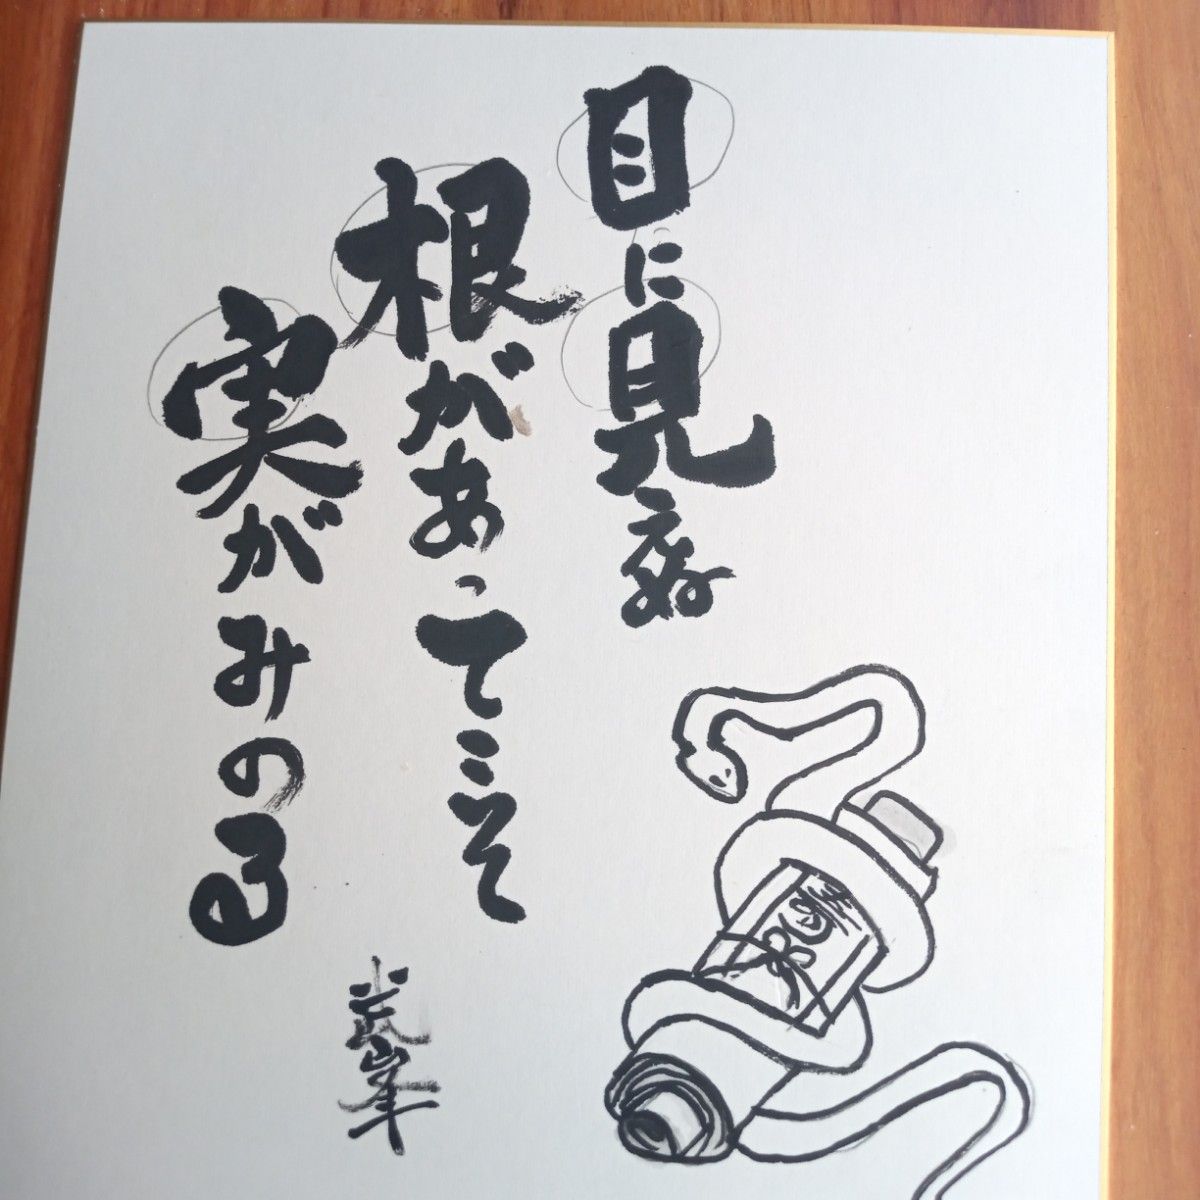 目に見えぬ
根があってこそ
実がみのる
武峯